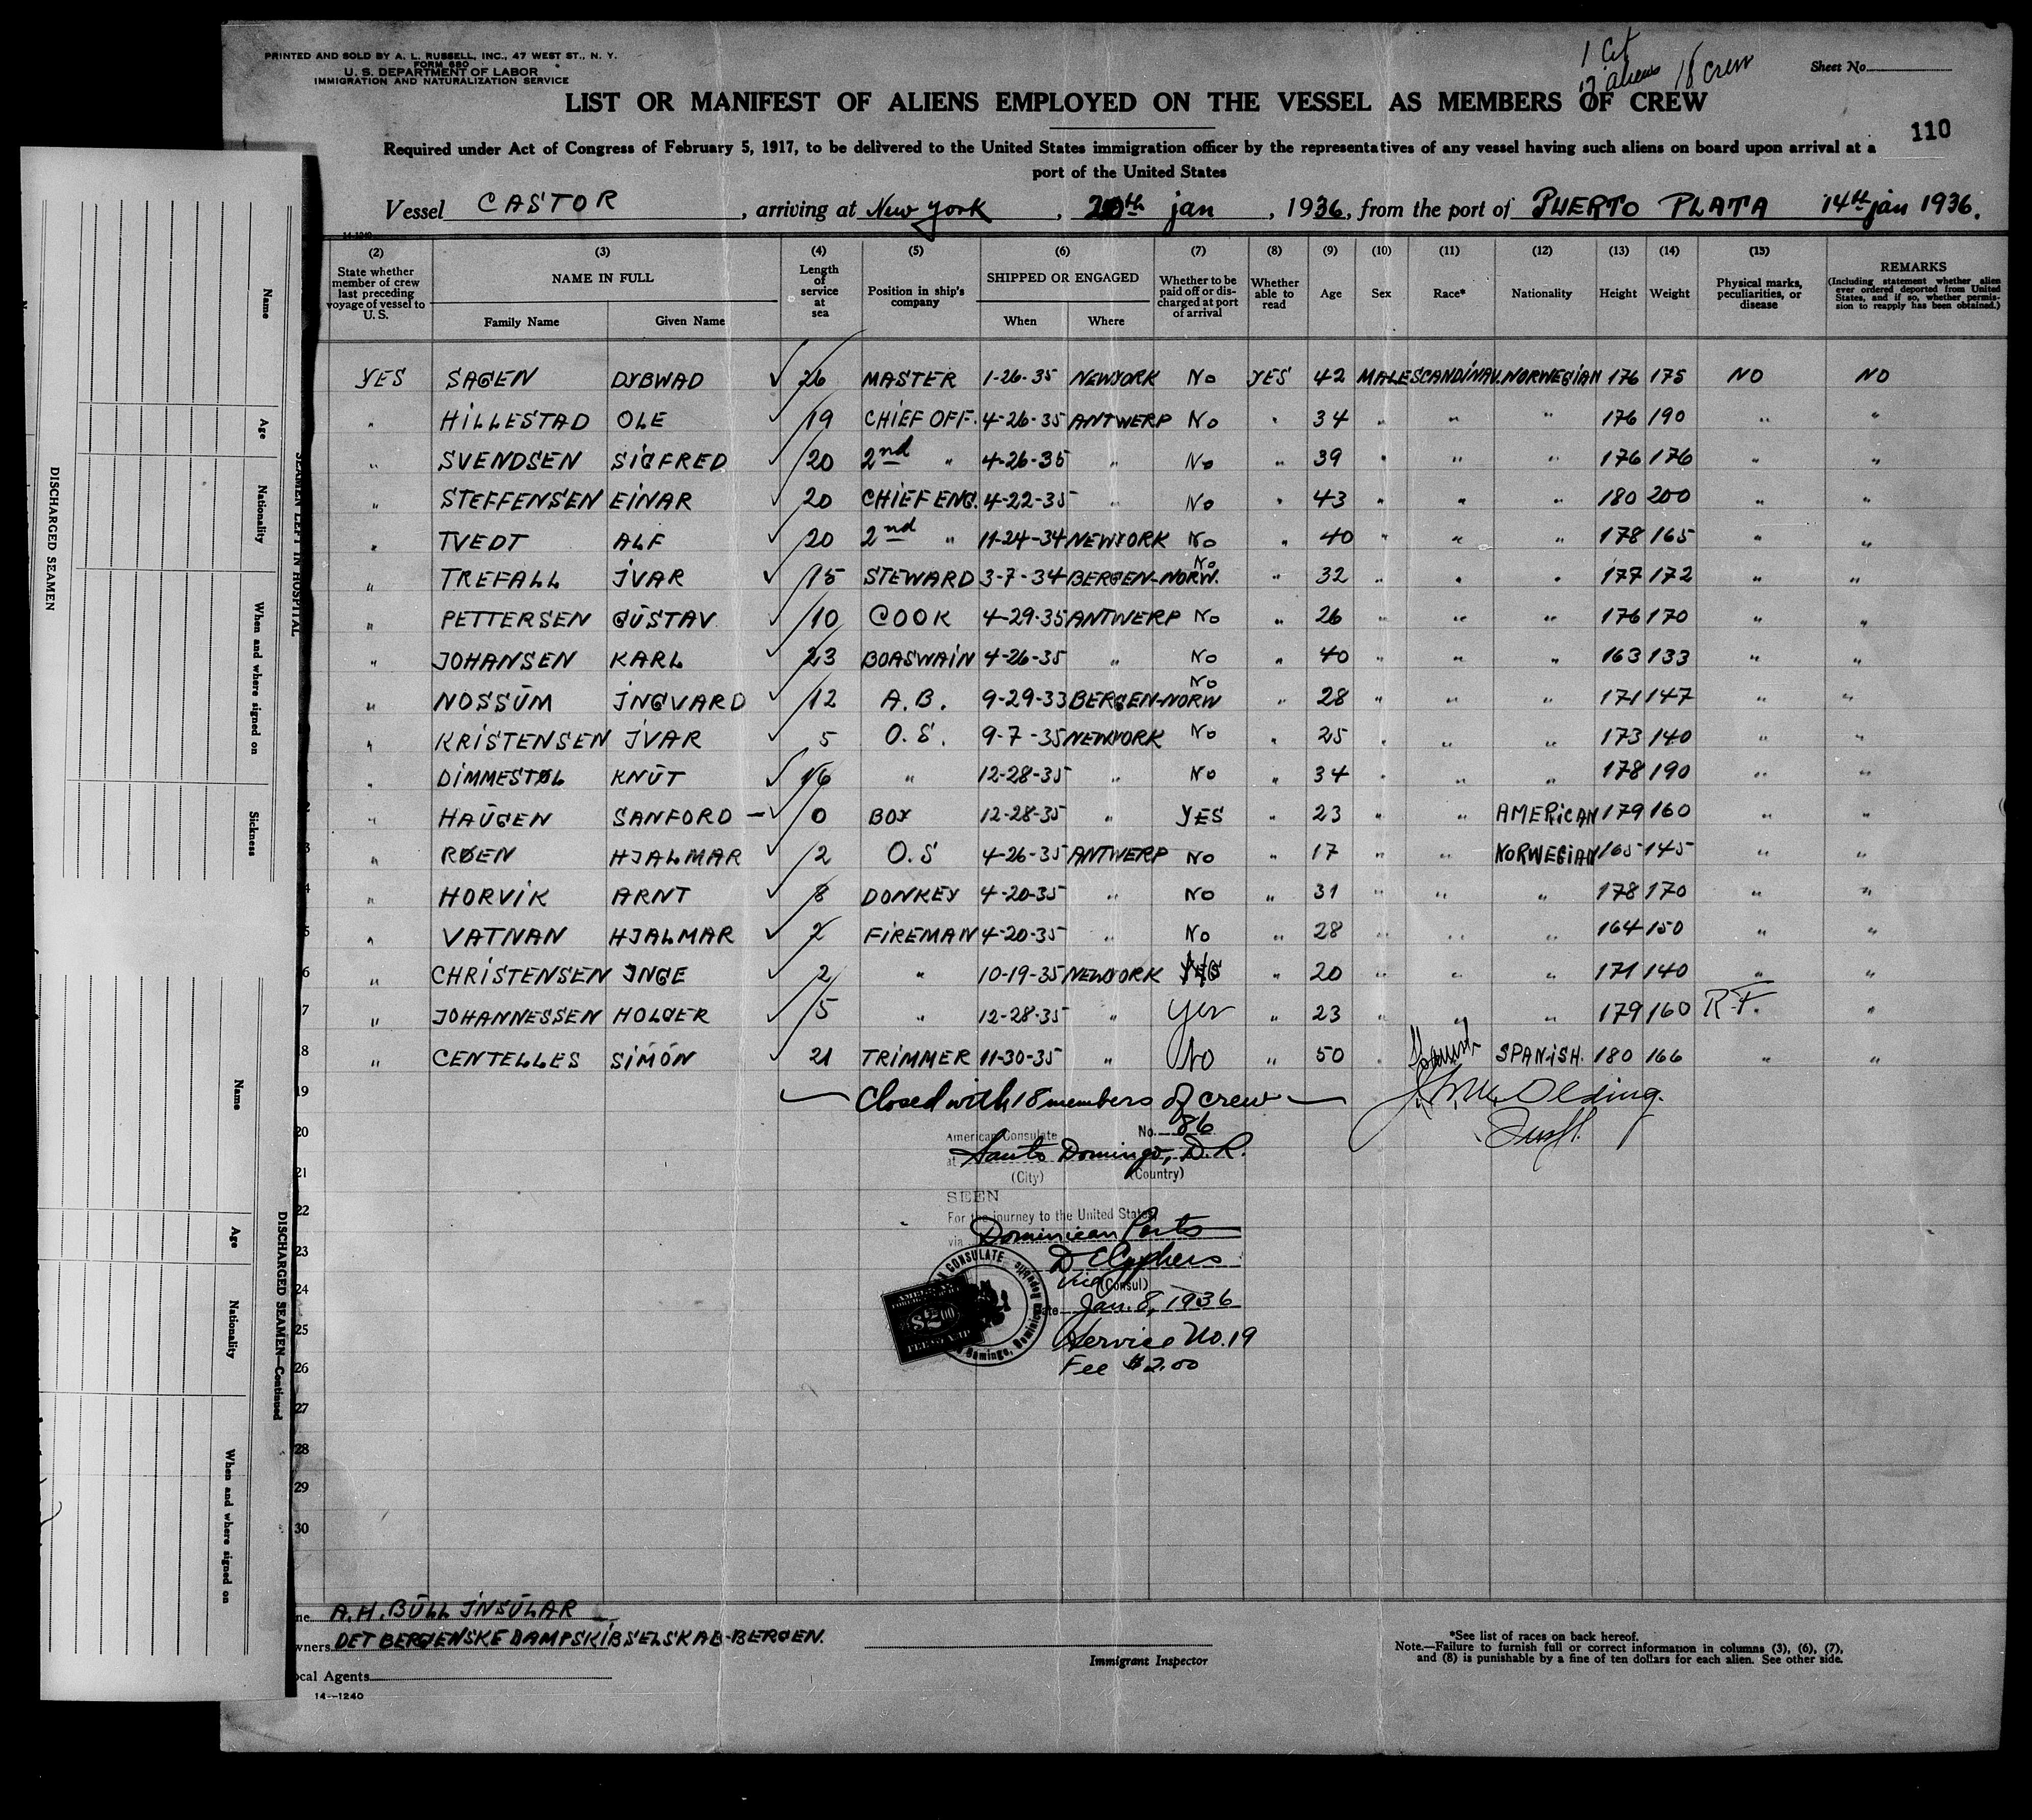 PRINTED AND SOLD BY A. L. RUSSELL, INC., 47 WEST ST., N. Y.
FORM 680
U. S. DEPARTMENT OF LABOR
IMMIGRATION AND NATURALIZATION SERVICE
1 Cit
17 aliens 18 crew
Sheet No.
LIST OR MANIFEST OF ALIENS EMPLOYED ON THE VESSEL AS MEMBERS OF CREW
110
Required under Act of Congress of February 5, 1917, to be delivered to the United States immigration officer by the representatives of any vessel having such aliens on board upon arrival at a
port of the United States
Vessel CASTOR, arriving at New York, 20th jan, 1936, from the port of PUERTO PLATA 14th jan 1936.
14-1240
(2) (3) (4) (5) (6) (7) (8) (9) (10) (11) (12) (13) (14) (15)
State whether member of crew last preceding voyage of vessel to U.S.
NAME IN FULL
Family Name Given Name
Length of service at sea
Position in ship's company
SHIPPED OR ENGAGED
When Where
Whether to be paid off or discharged at port of arrival
Whether able to read
Age
Sex
Race*
Nationality
Height
Weight
Physical marks, peculiarities, or disease
REMARKS
(Including statement whether alien ever ordered deported from United States, and if so, whether permission to reapply has been obtained.)
YES SAGEN DYBWAD ✓ 26 MASTER 1-26-35 NEWYORK No YES 42 MALE SCANDINAV. NORWEGIAN 176 175 NO NO
" HILLESTAD OLE ✓ 19 CHIEF OFF. 4-26-35 ANTWERP No " 34 " " " 176 190 " "
" SVENDSEN SIGFRED ✓ 20 2nd " 4-26-35 " No " 39 " " " 176 176 " "
" STEFFENSEN EINAR ✓ 20 CHIEF ENG. 4-22-35 " No " 43 " " " 180 200 " "
" TVEDT ALF ✓ 20 2nd " 11-24-34 NEWYORK No " 40 " " " 178 165 " "
" TREFALL IVAR ✓ 15 STEWARD 3-7-34 BERGEN-NORW. No " 32 " " " 177 172 " "
" PETTERSEN GUSTAV ✓ 10 COOK 4-29-35 ANTWERP No " 26 " " " 176 170 " "
" JOHANSEN KARL ✓ 23 BOASWAIN 4-26-35 " No " 40 " " " 163 133 " "
" NOSSUM INGVARD ✓ 12 A.B. 9-29-33 BERGEN-NORW No " 28 " " " 171 147 " "
" KRISTENSEN IVAR ✓ 5 O.S. 9-7-35 NEWYORK No " 25 " " " 173 140 " "
" DIMMESTØL KNUT ✓ 16 " 12-28-35 " No " 34 " " " 178 190 " "
" HAUGEN SANFORD – ✓ 0 BOY 12-28-35 " YES " 23 " " AMERICAN 179 160 " "
" RØEN HJALMAR ✓ 2 O.S 4-26-35 ANTWERP No " 17 " " NORWEGIAN 165 145 " "
" HORVIK ARNT ✓ 8 DONKEY 4-20-35 " No " 31 " " " 178 170 " "
" VATNAN HJALMAR ✓ 2 FIREMAN 4-20-35 " No " 28 " " " 164 150 " "
" CHRISTENSEN INGE ✓ 2 " 10-19-35 NEWYORK " 20 " " " 171 140 " "
" JOHANNESSEN HOLGER ✓ 5 " 12-28-35 " yes " 23 " " " 179 160 R.F. "
18 " CENTELLES SIMÓN ✓ 21 TRIMMER 11-30-35 " No " 50 " Spanish SPANISH. 180 166 " "
19 Closed with 18 members of crew
20
American Consulate No. 86
at Santo Domingo, D.R.
(City) (Country)
21
SEEN
22
For the journey to the United States
via Dominican Ports
23
Vice (Consul)
24
Date Jan. 8, 1936
25
Service No. 19
26
Fee $2.00
27
28
29
30
CONSULATE
Domingo, Dominican Republic
$2.00
A.H. BULL INSULAR
DET BERGENSKE DAMPSKIBSELSKAB-BERGEN.
Local Agents
14—1240
Immigrant Inspector
*See list of races on back hereof.
Note.—Failure to furnish full or correct information in columns (3), (6), (7),
and (8) is punishable by a fine of ten dollars for each alien. See other side.
DISCHARGED SEAMEN
Name
Age
Nationality
When and where signed on
Sickness
SEAMEN LEFT IN HOSPITAL
DISCHARGED SEAMEN—Continued
Name
Age
Nationality
When and where signed on